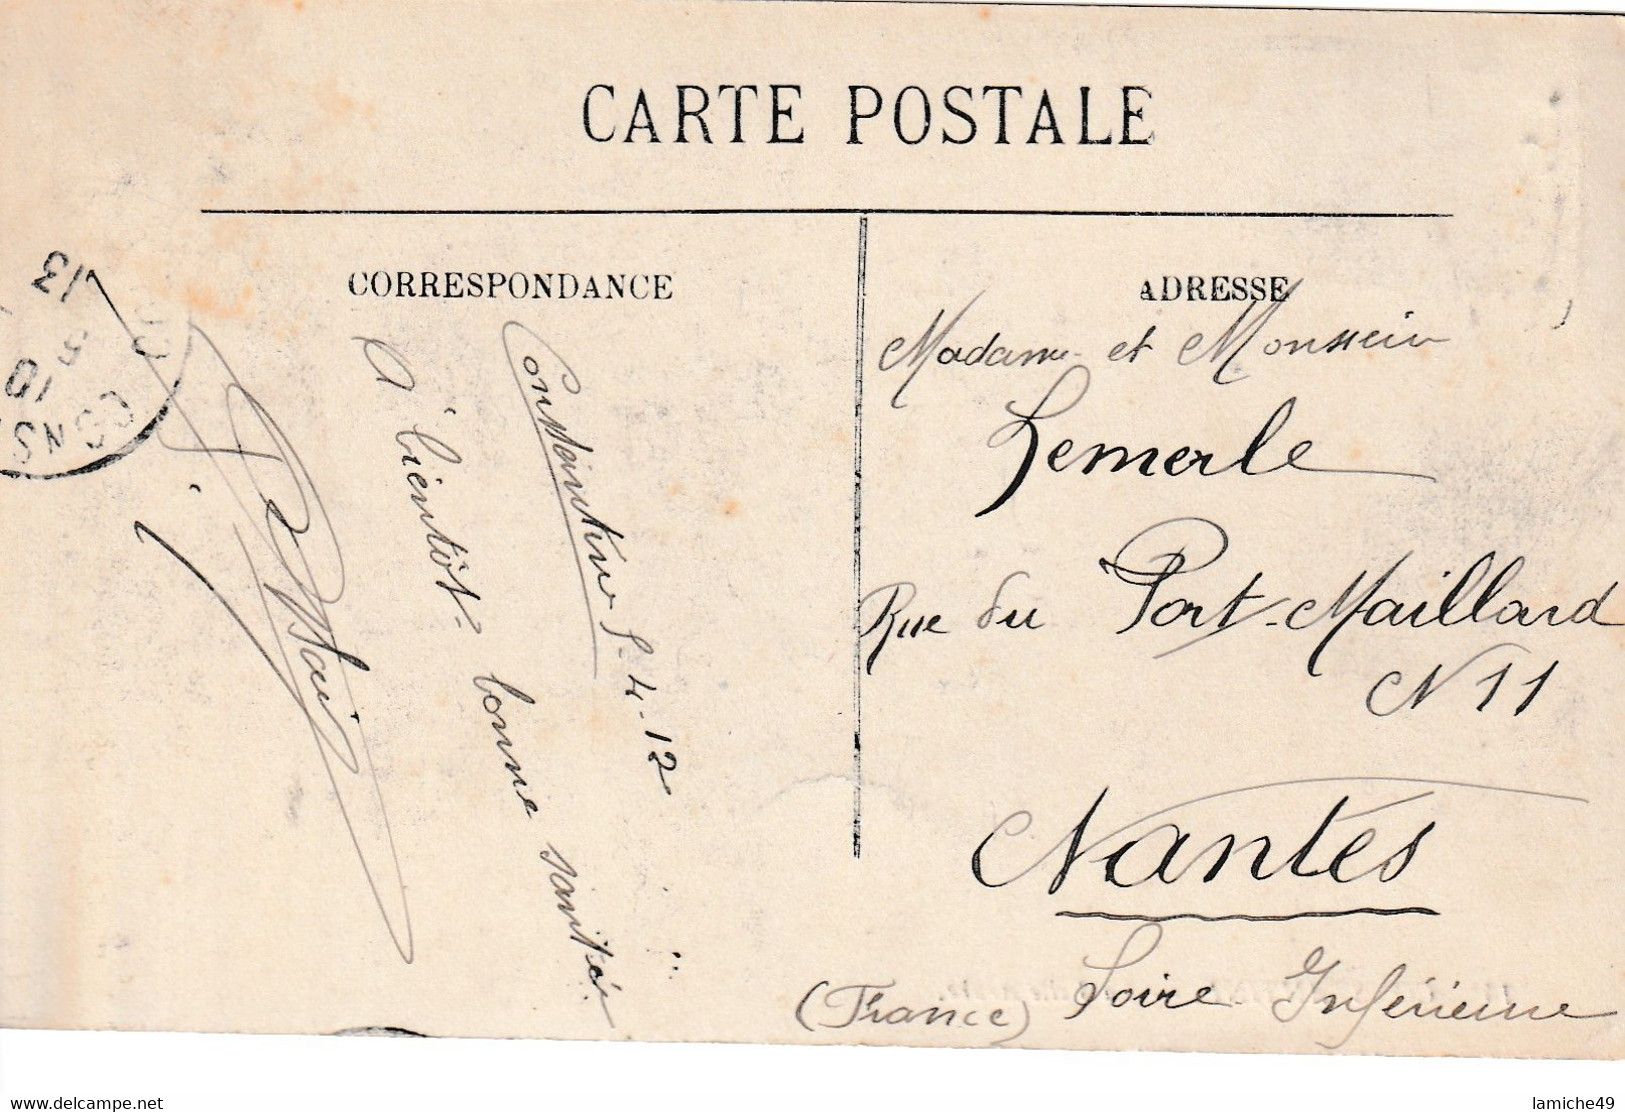 CARTE POSTALE
CORRESPONDANCE
Constantine 5-4-12
A bientôt - bonne santée
ADRESSE
Madame et Monsieur
Lemerle
Rue du Port-Maillard
N 11
Nantes
Loire Inférieure
(France)
13
5
10
CONS
www.delcampe.net
lamiche49